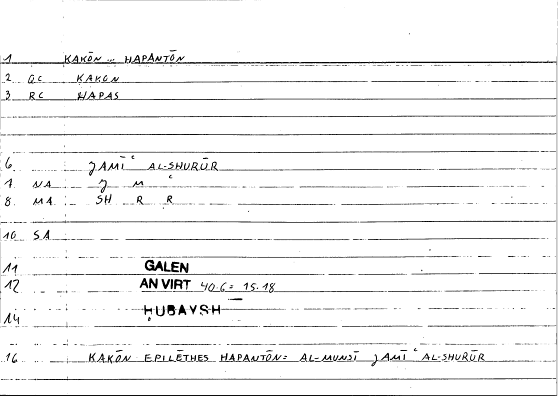 1 KAKŌN ... HAPANTŌN
2 GC KAKON
3 RC HAPAS
6 JAMĪʿ AL-SHURŪR
7 NA J M ʿ
8 MA SH R R
10 SA
11 GALEN
12 AN VIRT 40.6 = 15.18
14 ḤUBAYSH
16 KAKŌN EPILĒTHES HAPANTŌN = AL-MUNSĪ JAMĪʿ AL-SHURŪR